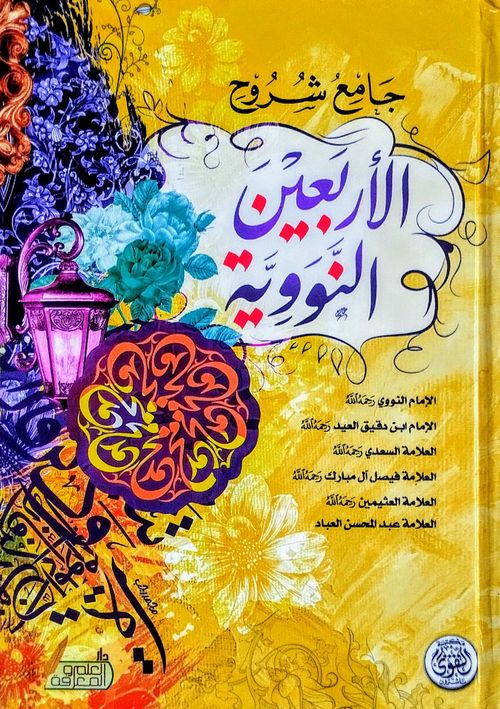 جَامِعُ شُرُوْح
الأَرْبَعِيْنَ
النَّوَوِيَّة
الإمام النووي رَحِمَهُ ٱللَّهُ
الإمام ابن دقيق العيد رَحِمَهُ ٱللَّهُ
العلامة السعدي رَحِمَهُ ٱللَّهُ
العلامة فيصل آل مبارك رَحِمَهُ ٱللَّهُ
العلامة العثيمين رَحِمَهُ ٱللَّهُ
العلامة عبد المحسن العباد
دار
العلم و
المعرفة
مكتبة
التقوى
ناشرون